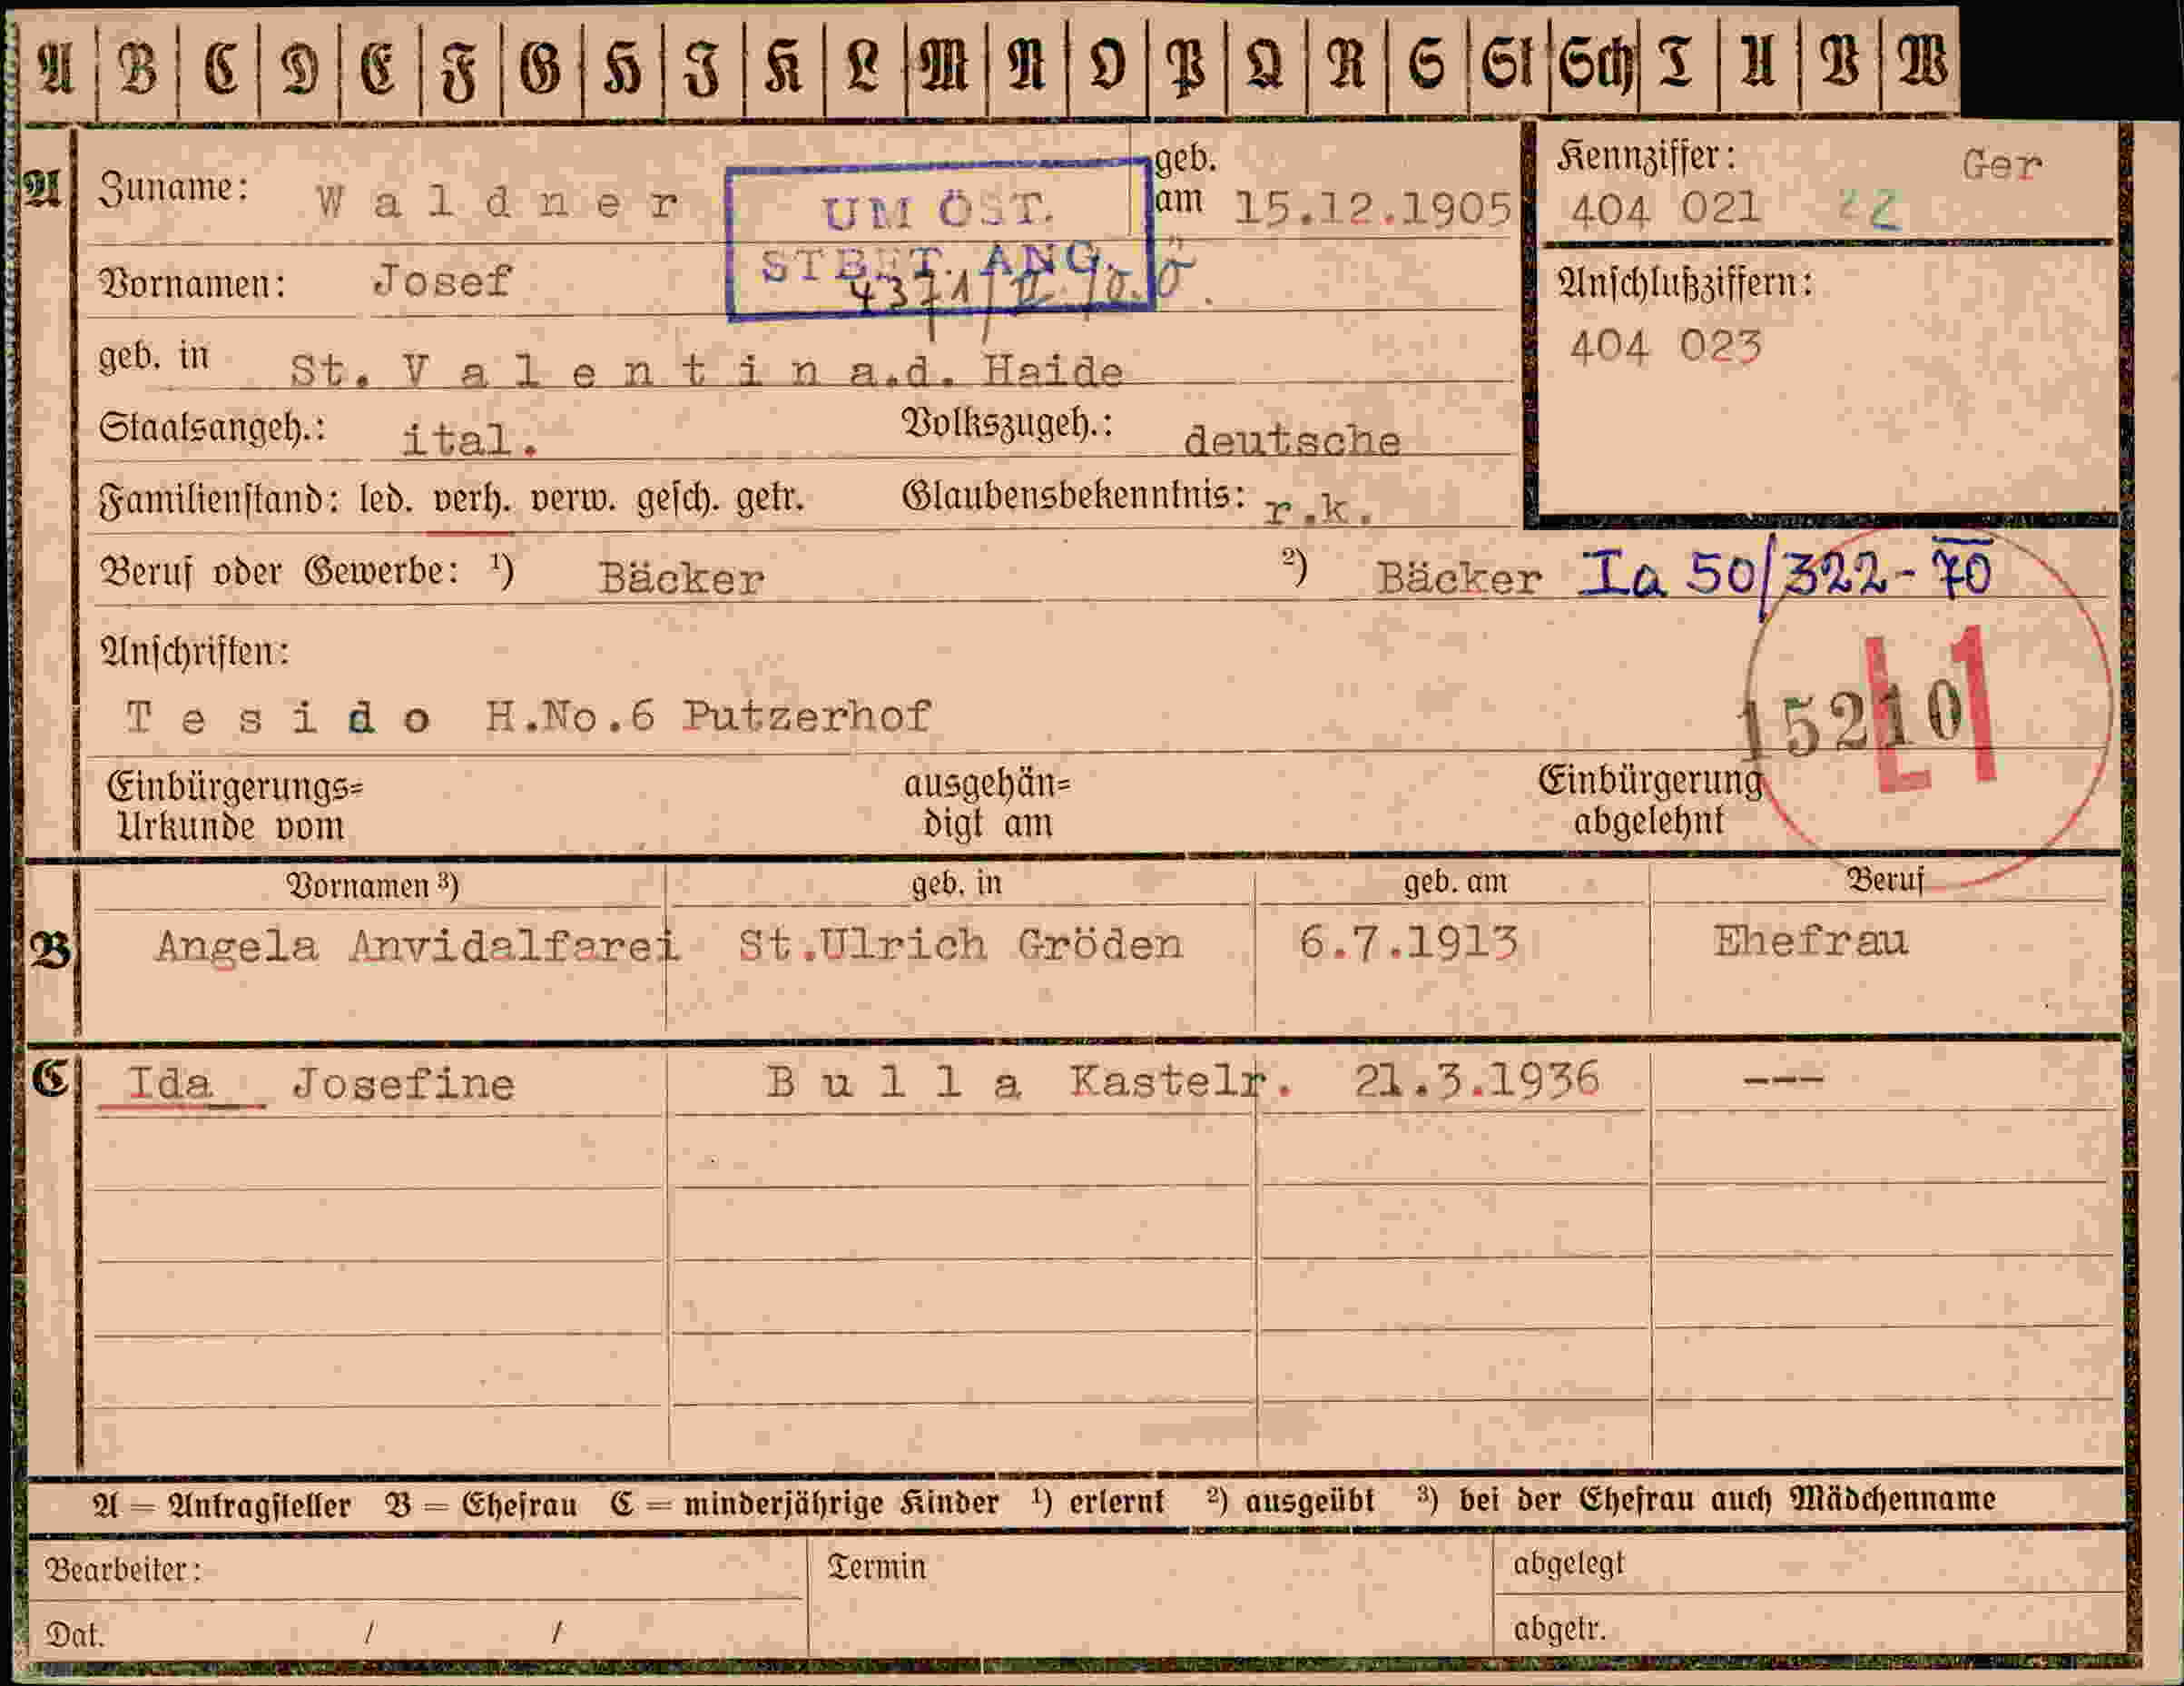 A B C D E F G H I K L M N O P Q R S St Sch T U V W
A Zuname: Waldner geb. am 15.12.1905
UM ÖST.
STBET. ANG.
Kennziffer: Ger
404 021 22
Vornamen: Josef
Anschlußziffern:
404 023
geb. in St. Valentin a.d. Haide
Staatsangeh.: ital. Volkszugeh.: deutsche
Familienstand: led. verh. verw. gesch. getr. Glaubensbekenntnis: r.k.
Beruf oder Gewerbe: ¹) Bäcker ²) Bäcker Ia 50/322-70
Anschriften:
L1
Tesido H.No.6 Putzerhof 15210
Einbürgerungs= ausgehän= Einbürgerung
Urkunde vom digt am abgelehnt
Vornamen ³) geb. in geb. am Beruf
B Angela Anvidalfarei St.Ulrich Gröden 6.7.1913 Ehefrau
C Ida Josefine Bulla Kastelr. 21.3.1936 ---
A = Antragsteller B = Ehefrau C = minderjährige Kinder ¹) erlernt ²) ausgeübt ³) bei der Ehefrau auch Mädchenname
Bearbeiter: Termin abgelegt
Dat. / / abgetr.